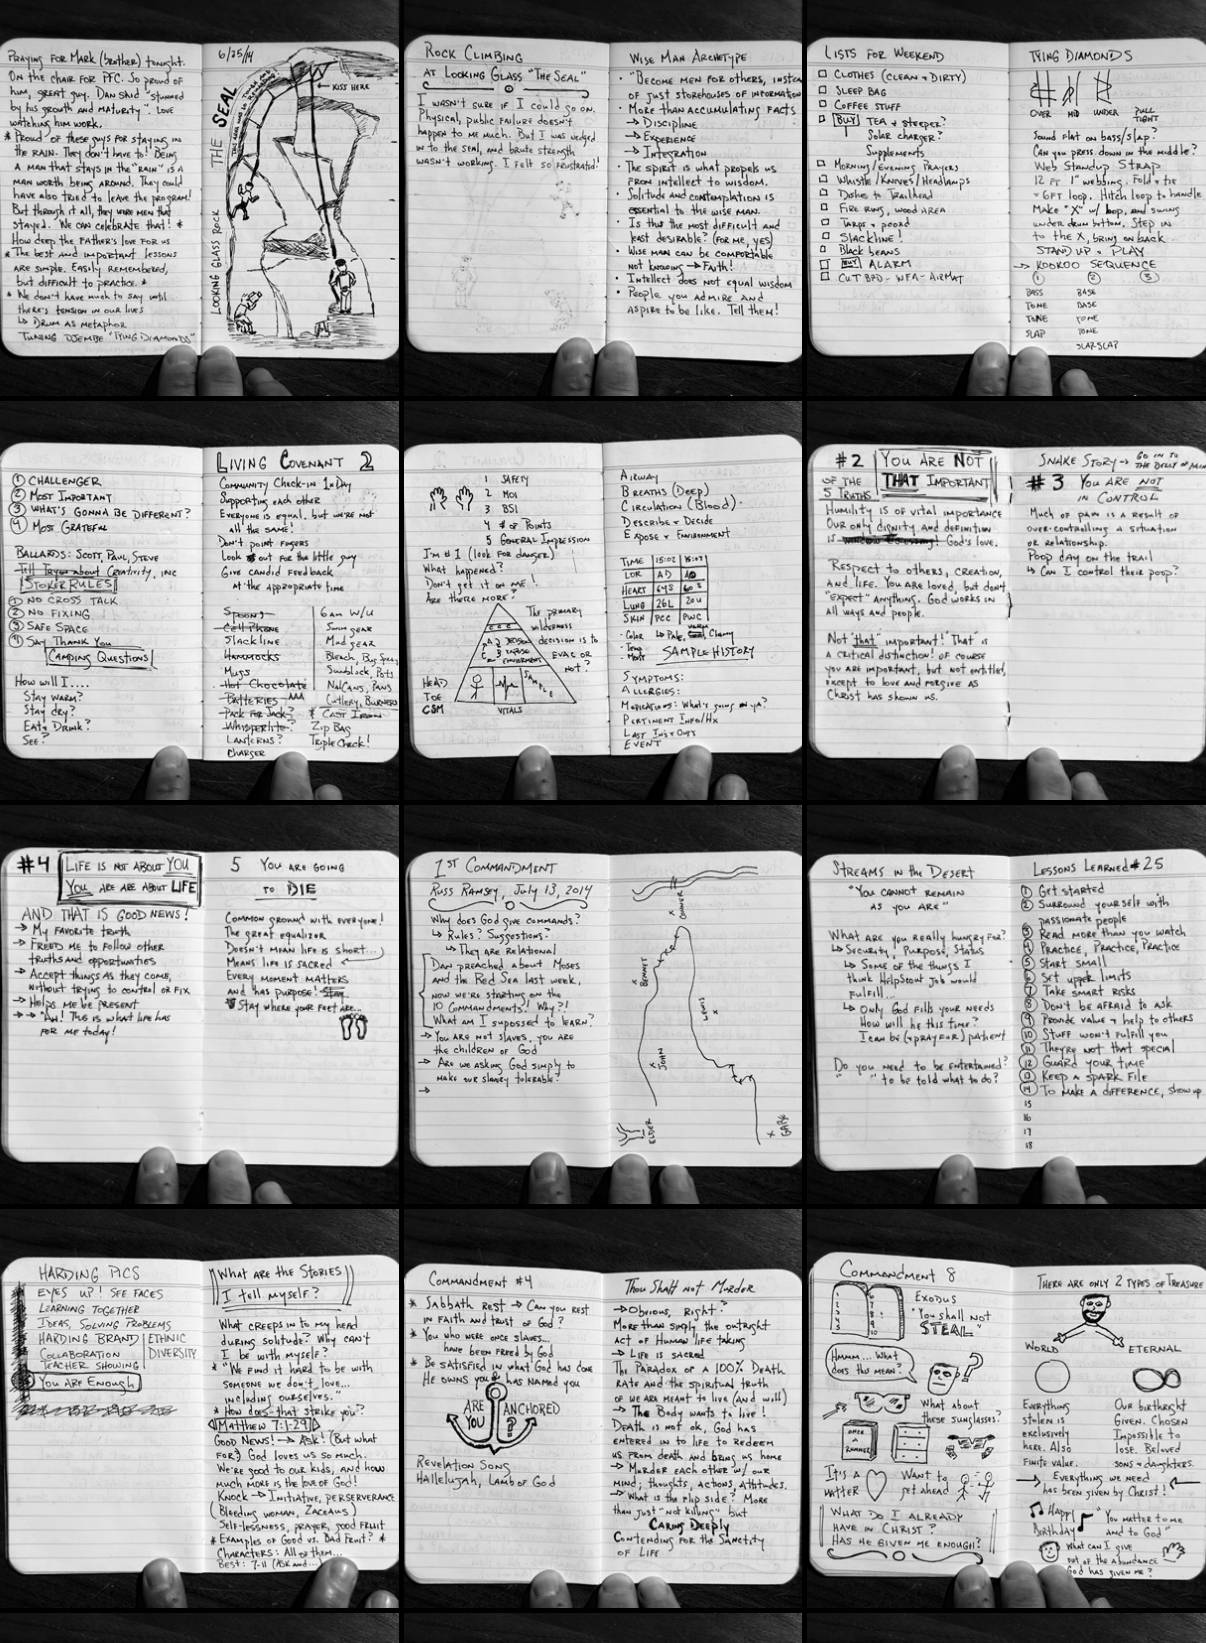 Praying for Mark (brother) tonight.
On the chair for PFC. So proud of
him, great guy. Dan said "stunned
by his growth and maturity". Love
watching him work.
* Proud of these guys for staying in
the rain. They don't have to! Being
a man that stays in the "rain" is a
man worth being around. They could
have also tried to leave the program!
But through it all, they were men that
stayed. We can celebrate that! *
How deep the Father's love for us
* The best and important lessons
are simple. Easily remembered,
but difficult to practice. *
* We don't have much to say until
there's tension in our lives
↳ Drum as metaphor
Tuning Djembe "Tying Diamonds"
6/25/14
THE SEAL
← KISS HERE
LOOKING GLASS ROCK
Rock Climbing
at Looking Glass "The Seal"
I wasn't sure if I could go on.
Physical, public failure doesn't
happen to me much. But I was wedged
in to the seal, and brute strength
wasn't working. I felt so frustrated!
Wise Man Archetype
• "Become men for others, instead
of just storehouses of information
• More than accumulating facts
→ Discipline
→ Experience
→ Integration
• The spirit is what propels us
from intellect to wisdom.
• Solitude and contemplation is
essential to the wise man.
• Is this the most difficult and
least desirable? (for me, yes)
• Wise man can be comfortable
not knowing → Faith!
• Intellect does not equal wisdom
• People you admire and
aspire to be like. Tell them!
Lists for Weekend
Clothes (clean + dirty)
Sleep bag
Coffee stuff
BUY Tea + steeper?
Solar charger?
Supplements
Morning/Evening Prayers
Whistle/Knives/Headlamps
Dishes to Trailhead
Fire ring, wood area
Tarps + pcord
Slackline!
Black beans
BUY Alarm
Cut BPD - WFA - Airmat
Tying Diamonds
OVER MID UNDER PULL TIGHT
Sound flat on bass/slap?
Can you press down in the middle?
Web Standup Strap
12 ft 1" webbing. Fold + tie
~6ft loop. Hitch loop to handle
Make "X" w/ loop, and swing
under drum bottom. Step in
to the X, bring on back.
Stand up + play
→ Kookoo Sequence
① ② ③
Bass Base
Tone Base
Tone Tone
Slap Tone
Slap-Slap
① Challenger
② Most Important
③ What's gonna be different?
④ Most grateful
Ballards: Scott, Paul, Steve
Tell Tryon about Creativity, Inc
Stoker Rules
① No cross talk
② No fixing
③ Safe space
④ Say Thank You
Camping Questions
How will I....
Stay warm?
Stay dry?
Eat + Drink?
See?
Living Covenant 2
Community Check-in 1xDay
Supporting each other
Everyone is equal, but we're not
all the same!
Don't point fingers
Look out for the little guy
Give candid feedback
at the appropriate time
Spoon
Cell Phone
Slackline
Hammocks
Mugs
Hot Chocolate
Batteries AAA
Pack for Jack?
Whisperlite?
Lanterns?
Charger
6am W/U
Swim gear
Mud gear
Bleach, Bug Spray
Sunblock, Pots
NalCans, Pans
Cutlery, Burners
* Cast Iron
Zip Bag
Triple Check!
1 Safety
2 MOI
3 BSI
4 # of Points
5 General Impression
I'm #1 (look for danger)
What happened?
Don't get it on me!
Are there more?
The primary
wilderness
decision is to
EVAC or
not?
Head
Toe
CSM
Vitals
SAMPLE
Airway
Breaths (Deep)
Circulation (Blood)
Describe + Decide
Expose + Environment
Time 15:02
LOR
Heart
Lung
Skin PCC PWC
• Color ↳ Pale, Clamy
• Temp
• Moist
SAMPLE HISTORY
Symptoms:
Allergies:
Medications: What's going in ya?
Pertinent Info/Hx
Last In's + Outs
Event
#2 You Are NOT
of the THAT Important
5 Truths
Humility is of vital importance
Our only dignity and definition
is God's love.
Respect to others, creation,
and life. You are loved, but don't
"expect" anything. God works in
all ways and people.
Not "that" important! "That" is
a critical distinction! Of course
you are important, but not entitled,
except to love and forgive as
Christ has shown us.
Snake Story → Go in to
the belly of pain
#3 You are NOT
in control
Much of pain is a result of
over-controlling a situation
or relationship.
Poop day on the trail
↳ Can I control their poop?
#4 Life is not about YOU
You are are about LIFE
AND THAT IS GOOD NEWS!
→ My favorite truth
→ Freed me to follow other
truths and opportunities
→ Accept things as they come,
without trying to control or fix
→ Helps me be present
→→ "Ah! This is what life has
for me today!
5 You are going
to DIE
Common ground with everyone!
The great equalizor
Doesn't mean life is short...
Means life is sacred
Every moment matters
and has purpose!
Stay where your feet are...
1st Commandment
Russ Ramsey, July 13, 2014
Why does God give commands?
↳ Rules? Suggestions?
↳ They are relational
Dan preached about Moses
and the Red Sea last week,
now we're starting on the
10 Commandments! Why?!
What am I supossed to learn?
→ You are not slaves, you are
the children of God
→ Are we asking God simply to
make our slavery tolerable?
→
CONNER
BENNET
LEWIS
JOHN
ELDER
GARY
Streams in the Desert
"You cannot remain
as you are"
What are you really hungry for?
↳ Security, Purpose, Status
↳ Some of the things I
think HelpScout Job would
fulfill...
↳ Only God fills your needs
How will he this time?
I can be (+ pray for) patient
Do you need to be entertained?
" " to be told what to do?
Lessons Learned #25
① Get started
② Surround yourself with
passionate people
③ Read more than you watch
④ Practice, Practice, Practice
⑤ Start small
⑥ Set upper limits
⑦ Take smart risks
⑧ Don't be afraid to ask
⑨ Provide value + help to others
⑩ Stuff won't fulfill you
⑪ They're not that special
⑫ Guard your time
⑬ Keep a spark file
⑭ To make a difference, show up
15
16
17
18
Harding Pics
Eyes up! See faces
Learning together
Ideas, Solving Problems
Harding Brand
Collaboration
Teacher showing
Ethnic
Diversity
You Are Enough
What are the Stories
I tell myself?
What creeps in to my head
during solitude? Why can't
I be with myself?
* "We find it hard to be with
someone we don't love...
including ourselves."
* How does that strike you?
Matthew 7:1-29
Good News! → Ask! (But what
for?) God loves us so much.
We're good to our kids, and how
much more is the love of God!
Knock → Initiative, perserverance
(Bleeding woman, Zaceaus)
Self-lessness, prayer, good fruit
* Examples of Good vs. Bad Fruit? *
Characters: All of them...
Best: 7-11 (Ask and...
Commandment #4
* Sabbath rest → Can you rest
in faith and trust of God?
* You who were once slaves...
have been freed by God
* Be satisfied in what God has done
He owns you + has named you
ARE YOU ANCHORED?
Revelation Song
Hallelujah, Lamb of God
Thou Shalt not Murder
→ Obvious, Right?
More than simply the outright
act of Human life taking
→ Life is sacred
The Paradox of a 100% Death
rate and the spiritual truth
of we are meant to live (and will)
→ The Body wants to live!
Death is not ok, God has
entered in to life to redeem
us from death and bring us home
→ Murder each other w/ our
mind; thoughts, actions, attitudes.
→ What is the flip side? More
than just "not killing" but
Caring Deeply
Contending for the Sanctity
of Life
Commandment 8
Exodus
"You shall not
STEAL"
Hmmm... What
does this mean?
What about
these sunglasses?
It's a
matter
Want to
get ahead
What do I already
have in Christ?
Has he given me enough?
There are only 2 types of treasure
World Eternal
Everything
stolen is
exclusively
here. Also
finite value.
Our birthright
Given. Chosen
Impossible to
lose. Beloved
sons + daughters.
→ Everything we need ←
has been given by Christ!
Happy
Birthday
"You matter to me
and to God"
What can I give
out of the abundance
God has given me?